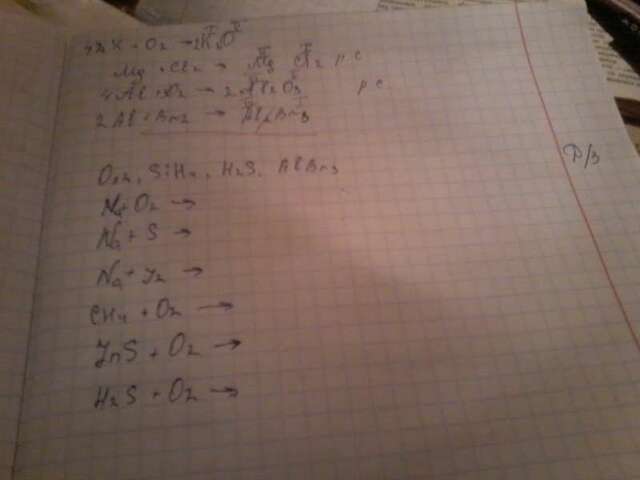 K + O2 → 2K2O
Mg + Cl2 → Mg Cl2 р.с.
4Al + O2 → 2Al2O3 р.с.
2Al + Br2 → AlBr3
SiH4, H2S, AlBr3
Д/з
Na + O2 →
Na + S →
Na + J2 →
CH4 + O2 →
ZnS + O2 →
H2S + O2 →